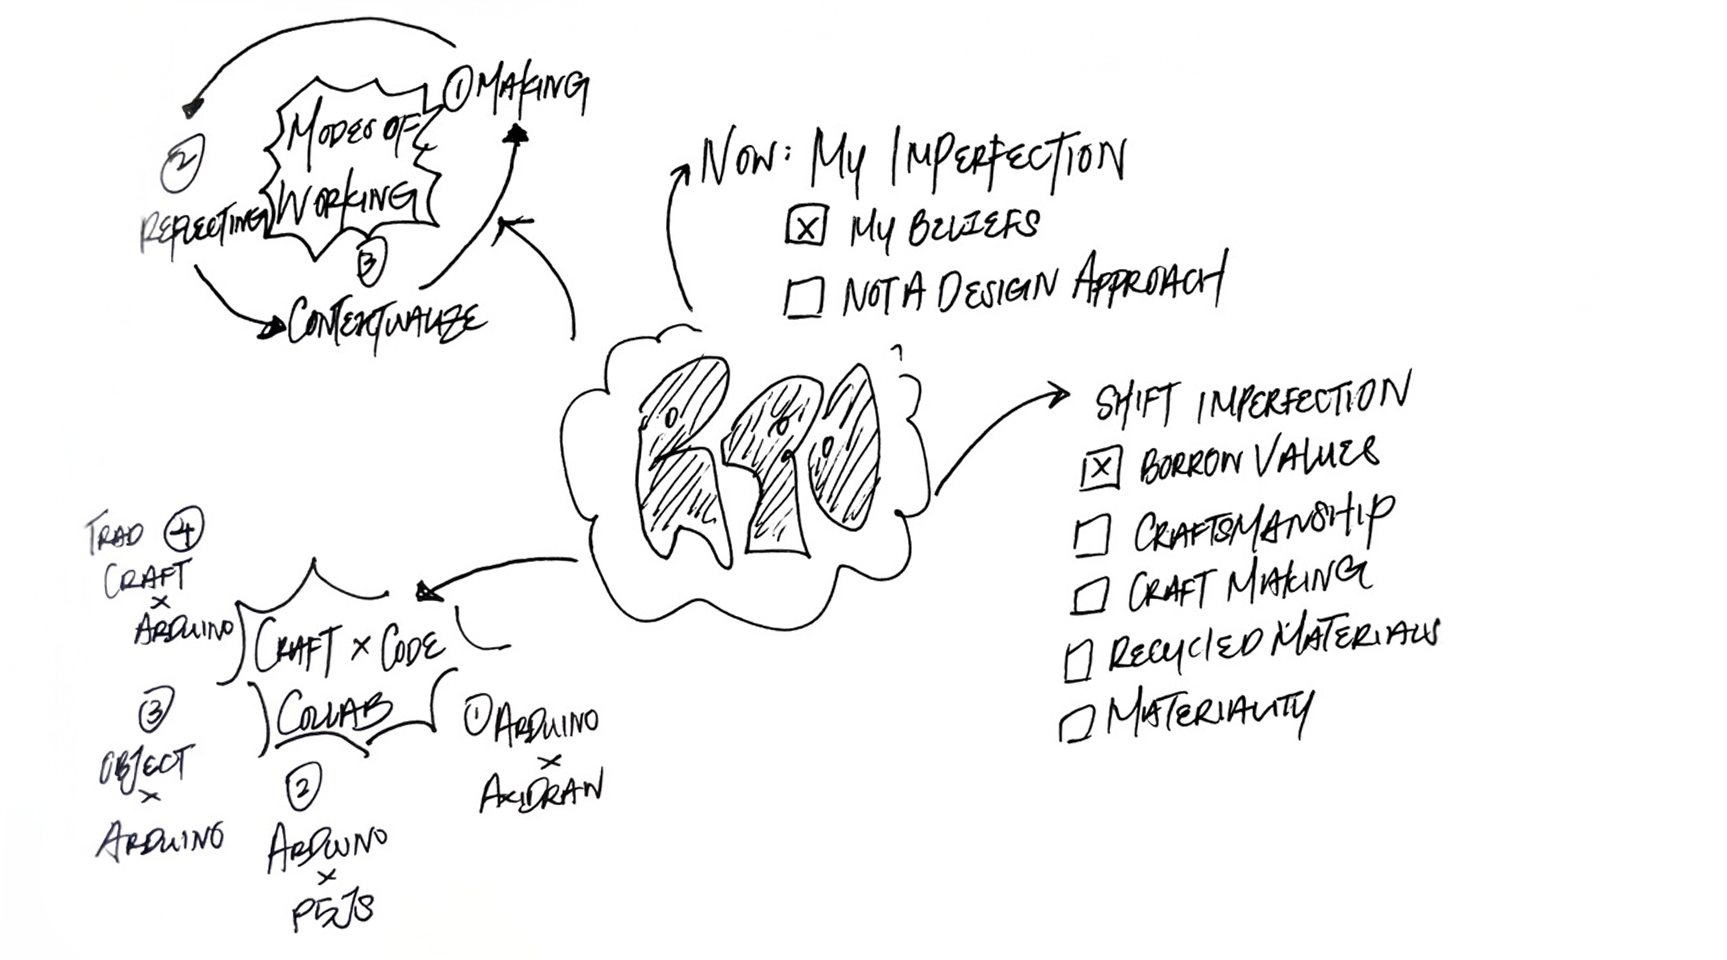 ① MAKING
MODES OF
WORKING
②
REFLECTING
③
CONTEXTUALIZE
NOW: MY IMPERFECTION
☒ MY BELIEFS
☐ NOT A DESIGN APPROACH
RPO
SHIFT IMPERFECTION
☒ BORROW VALUES
☐ CRAFTSMANSHIP
☐ CRAFT MAKING
☐ RECYCLED MATERIALS
☐ MATERIALITY
CRAFT × CODE
COLLAB
① ARDUINO
×
AXIDRAW
②
ARDUINO
×
P5JS
③
OBJECT
×
ARDUINO
TRAD ④
CRAFT
×
ARDUINO